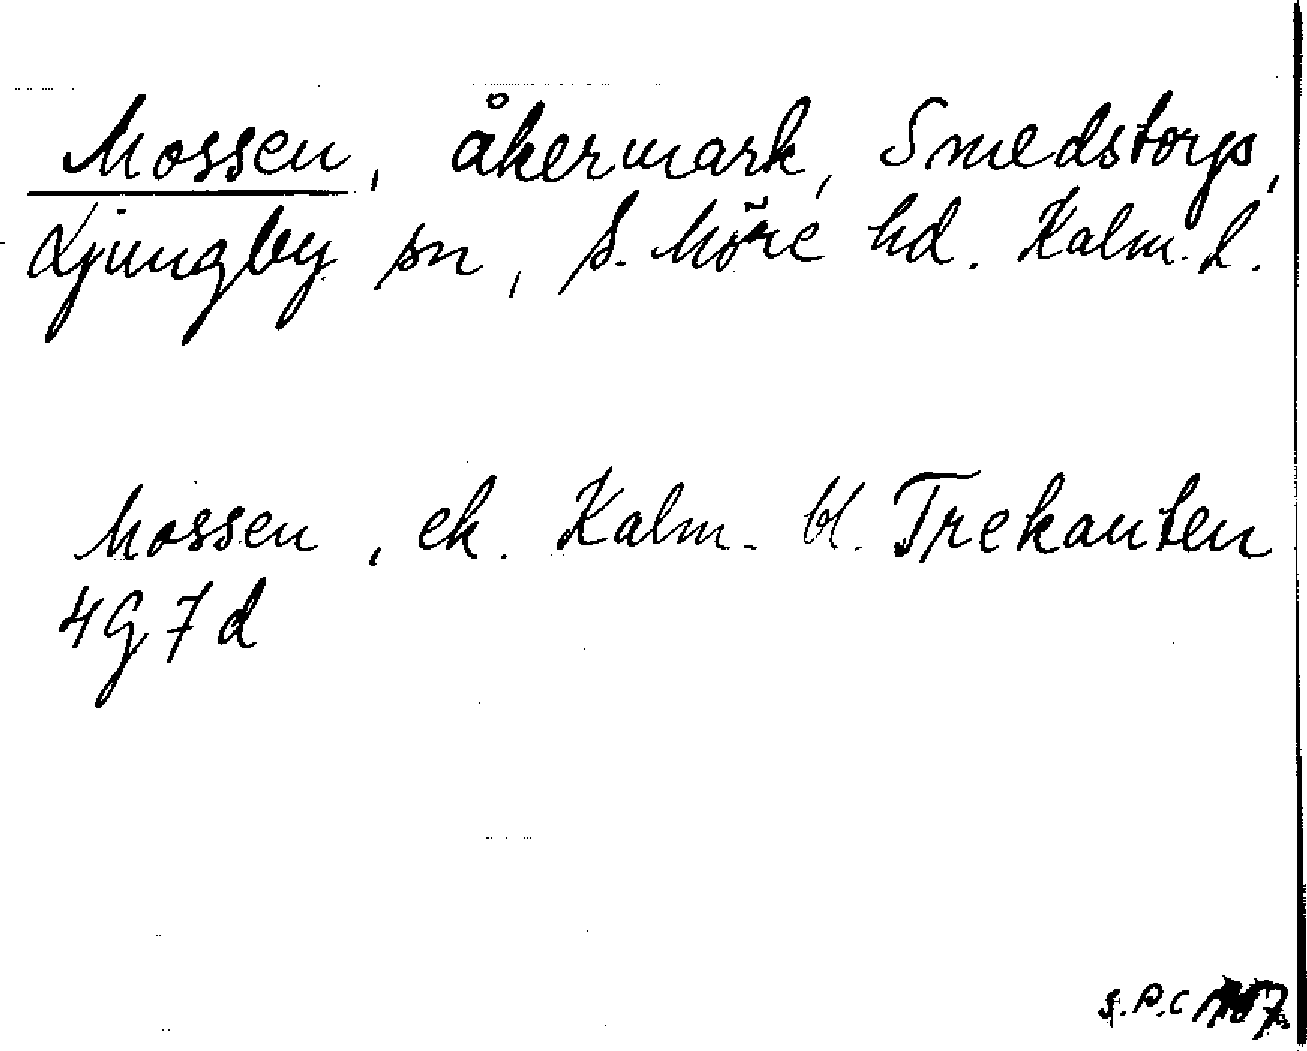 Mossen, åkermark, Smedstorp,
Ljungby sn, S. Möre hd. Kalm. L.
Mossen, ek. Kalm. bl. Trekanten
4G7d